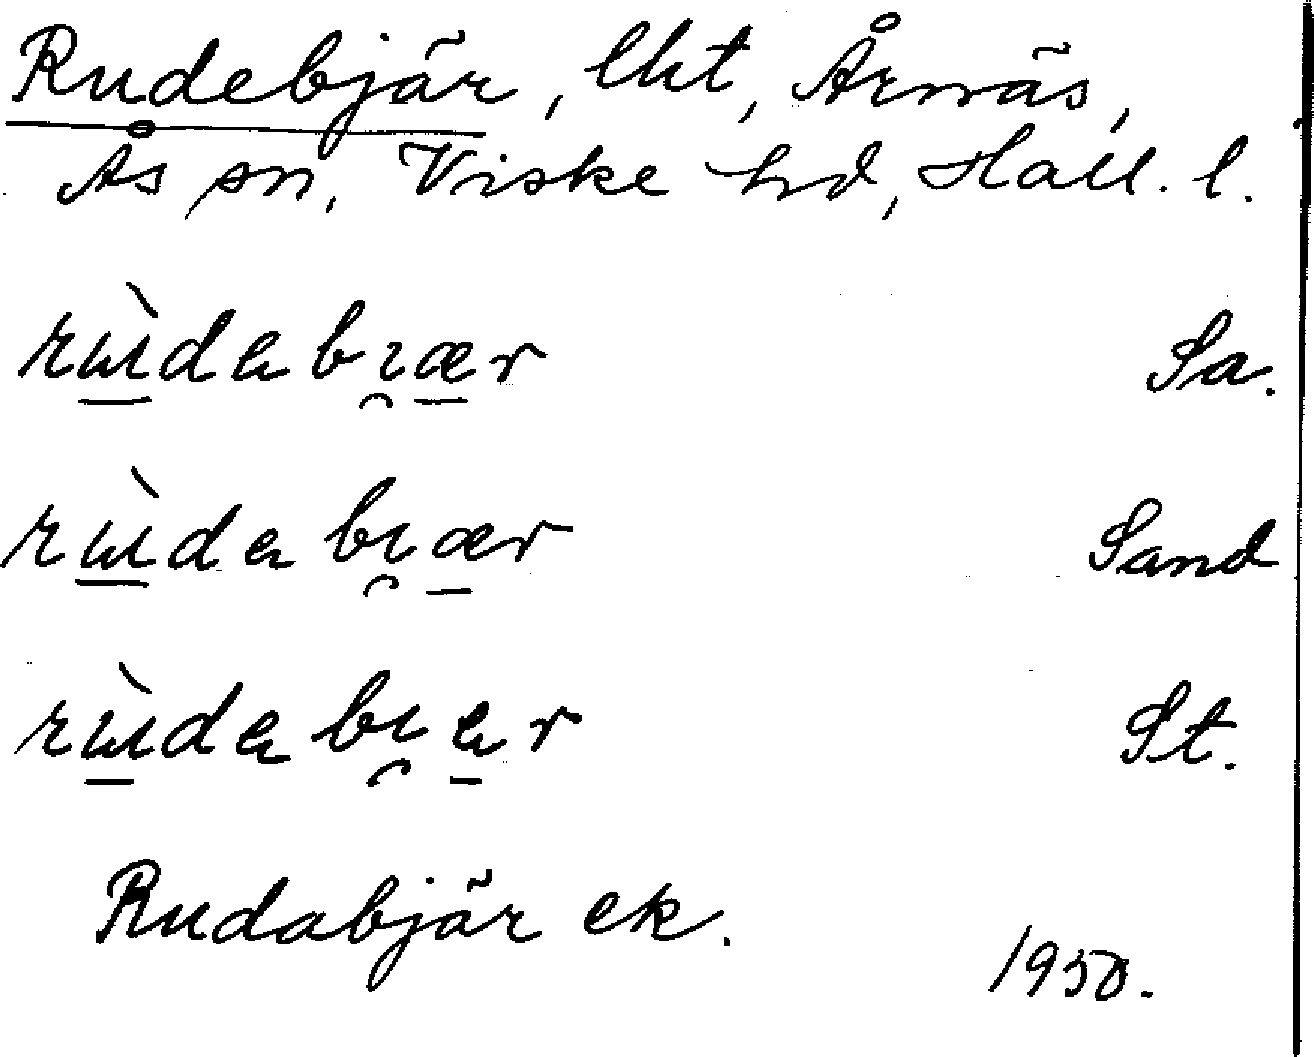 Rudebjär, lht, Årnäs,
Ås sn, Viske hd, Hall. l.
rɯ̀dabɪ̯ær Sa.
rɯ̀dabɪ̯ær Sand
rɯ̀dabɪ̯ar St.
Rudabjär ek.
1950.